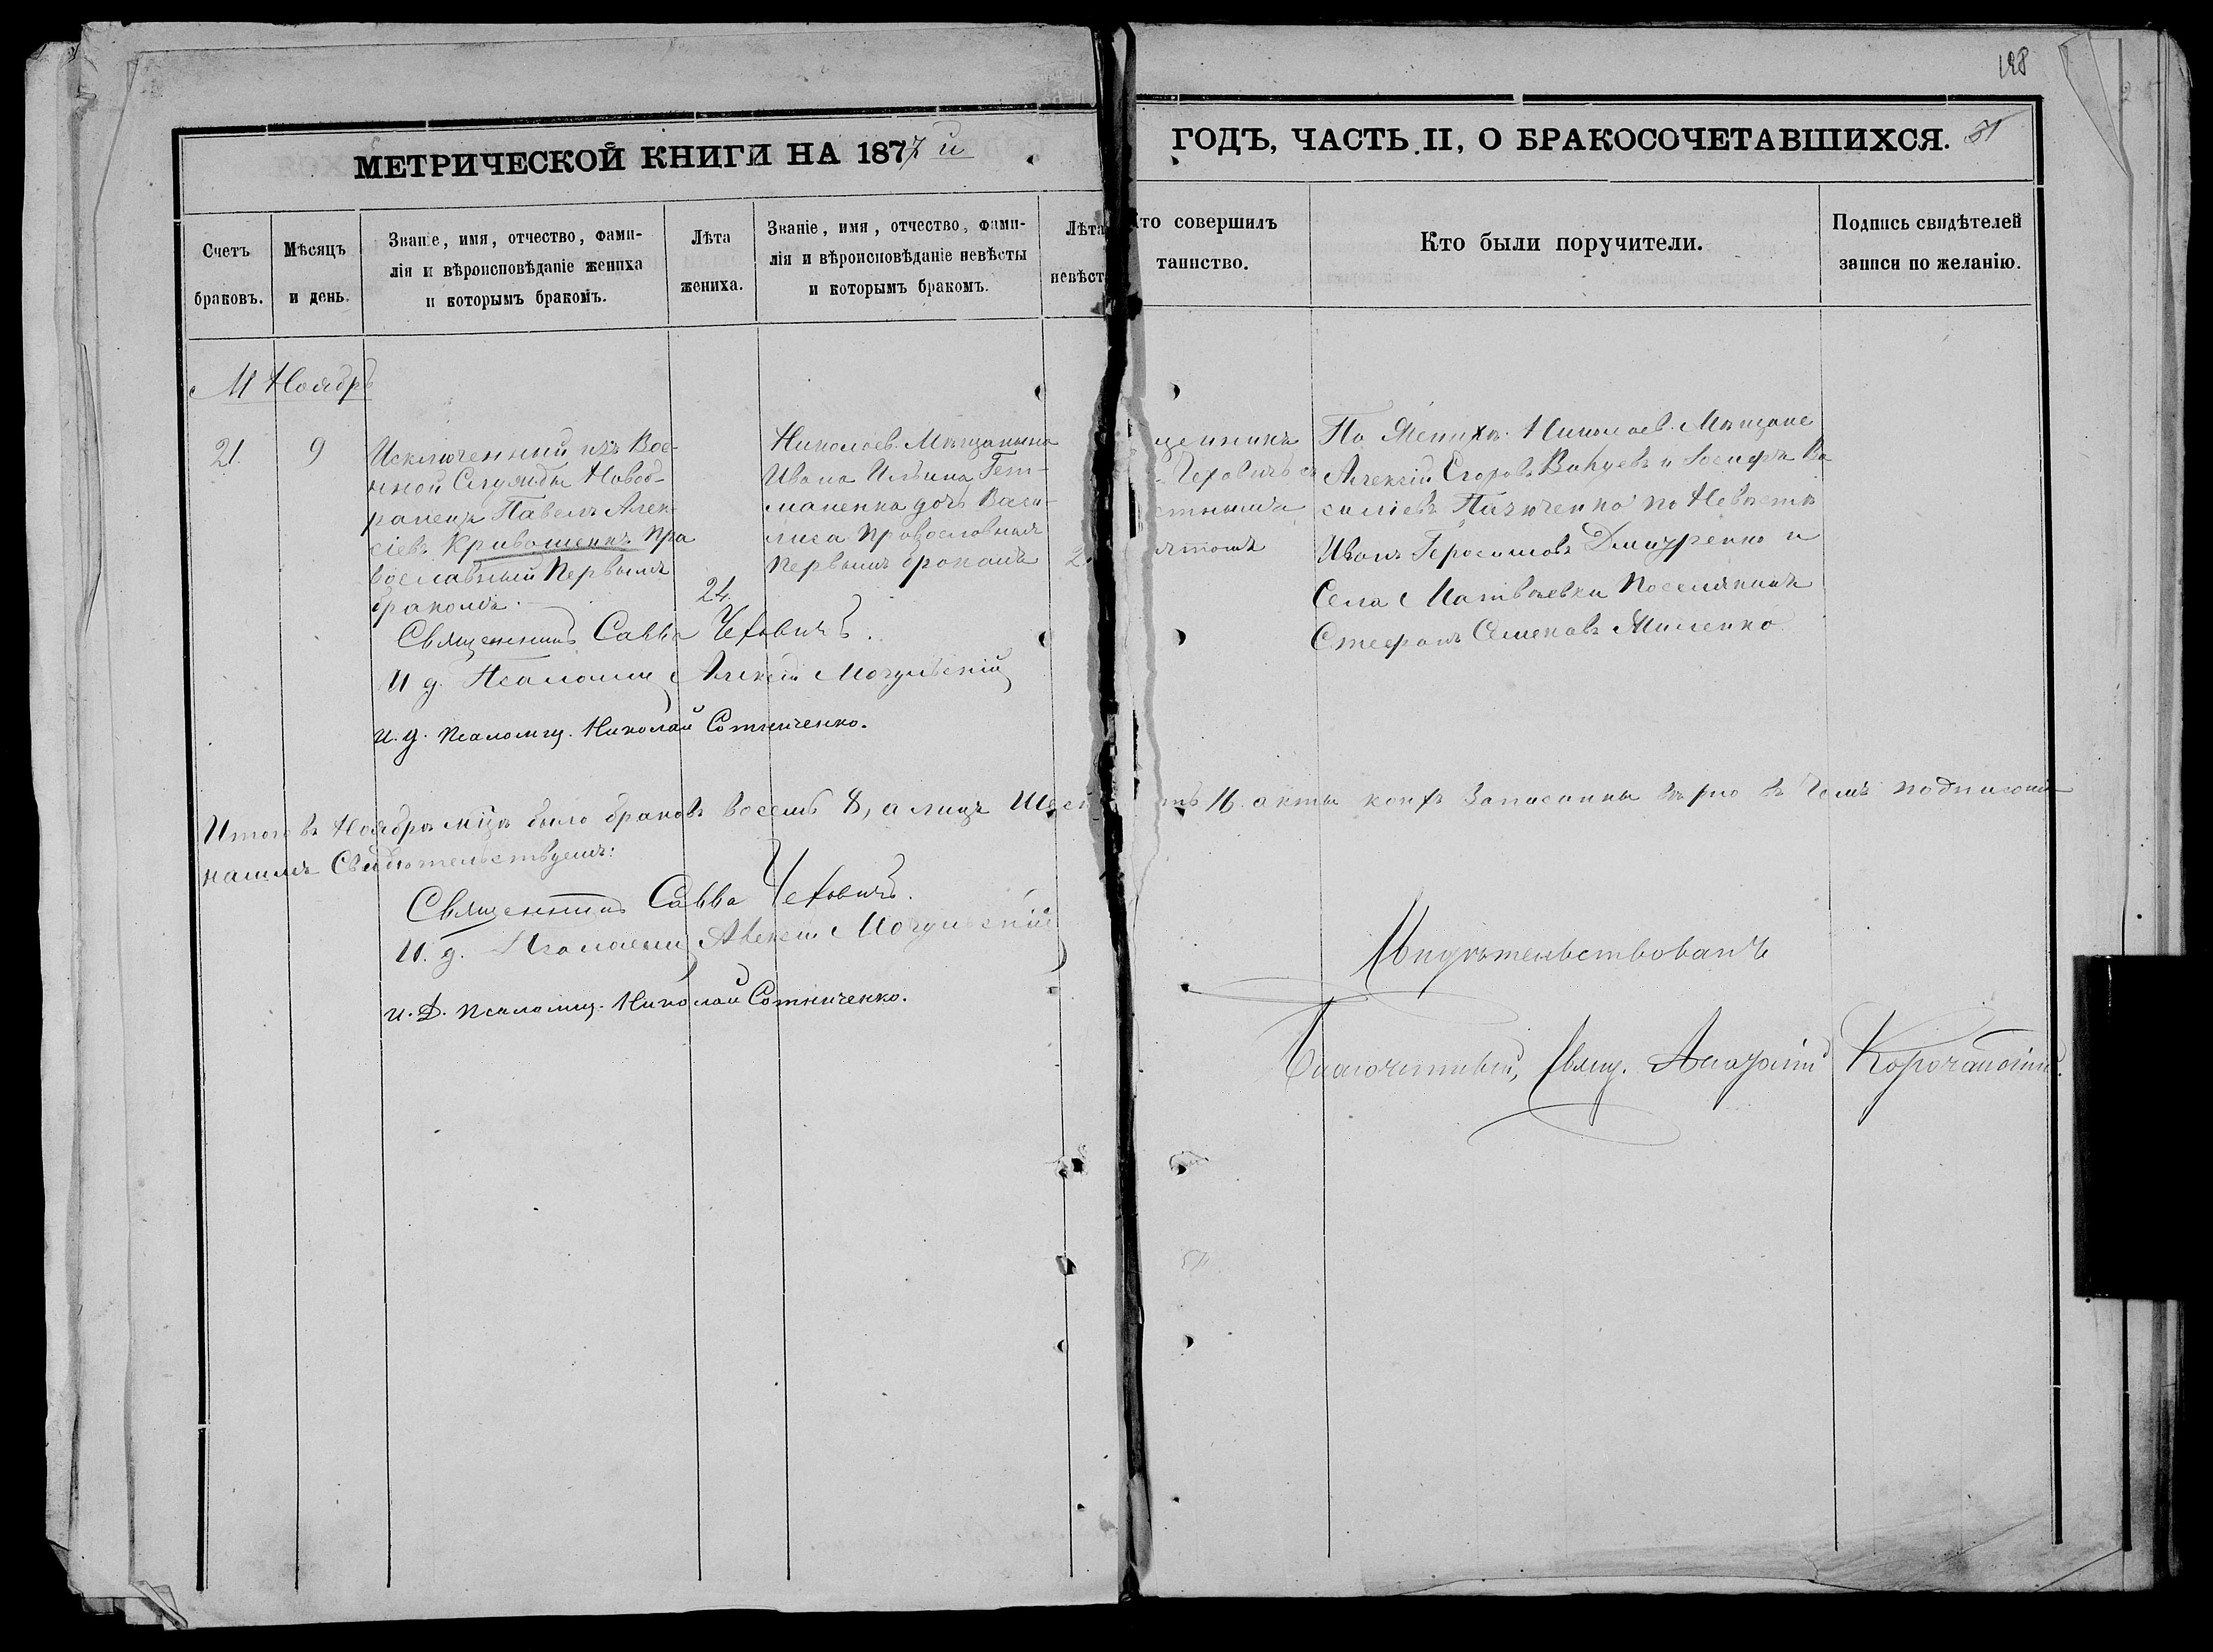 198
МЕТРИЧЕСКОЙ КНИГИ НА 1877 й
ГОДЪ, ЧАСТЬ II, О БРАКОСОЧЕТАВШИХСЯ. 31
Счетъ браковъ.
Мѣсяцъ и день.
Званіе, имя, отчество, фами-
лія и вѣроисповѣданіе жениха
и которымъ бракомъ.
Лѣта
жениха.
Званіе, имя, отчество, фами-
лія и вѣроисповѣданіе невѣсты
и которымъ бракомъ.
Лѣта
невѣст
то совершилъ
таинство.
Кто были поручители.
Подпись свидѣтелей
записи по желанію.
М Ноябрь
21. 9
Исключенный изъ Вое-
нной Службы Новоб-
ранецъ Павелъ Алек-
сіевъ Кривошеинъ Пра
вославный Первымъ
бракомъ.
24.
Николаев. Мѣщанина
Ивана Ильина Гет-
маненка дочь Васи-
лиса православная
первымъ бракомъ
2
щенникъ
Чеховичъ съ
По Женихѣ Николаев. Мѣщане
Алексій Егоровъ и Іосифъ Ва
силіевъ по Невѣсте
Иванъ Геросимовъ Дмитренко и
Села Матвѣевки Поселянинъ
Стефанъ Семеновъ Мисенко
Священникъ Савва Чеховичъ.
И д. Псаломщ Алексій Могульскій
и. д. Псаломщ. Николай Сотниченко.
Итого въ Ноябрѣ мцѣ было браковъ восемь 8, а лицъ Шест ть 16. акты коихъ записанны вѣрно въ чемъ подписомъ
нашимъ Свидѣтельствуемъ:
Священникъ Савва Чеховичъ.
И. д. Псаломщ Алексій Могульскій
и. Д. Псаломщ. Николай Сотниченко.
Свидѣтельствовалъ
Благочинный, Свящ. Корочанскій.